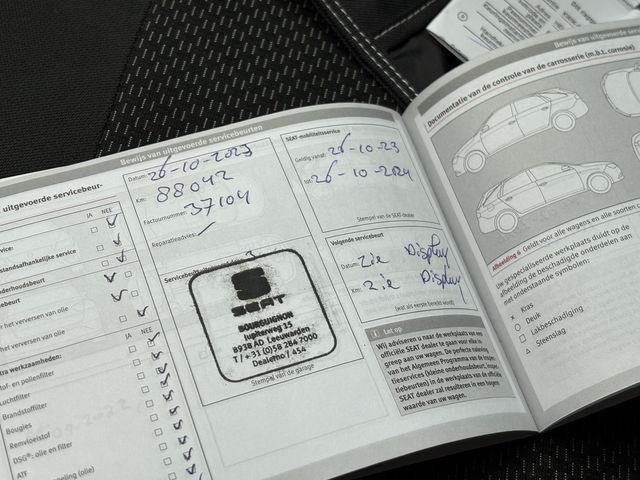 Bewijs van uitgevoerde servicebeurten
uitgevoerde servicebeur-
JA NEE
standsafhankelijke service
onderhoudsbeurt
beurt
het verversen van olie
het verversen van olie
tra werkzaamheden:
tof- en pollenfilter
Luchtfilter
Brandstoffilter
Bougies
Remvloeistof
DSG®: olie en filter
ATF
Datum: 26-10-2023
Km: 88042
Factuurnummer: 37104
Reparatieadvies:
SEAT
BOURGUIGNON
Jupiterweg 15
8938 AD Leeuwarden
T / +31 (0)58 284 7000
Dealerno / 454
Stempel van de garage
SEAT-mobiliteitsservice
Geldig vanaf: 26-10-23
tot: 26-10-2024
Stempel van de SEAT-dealer
Volgende servicebeurt
Datum: Zie Display
Km: Zie Display
(wat als eerste bereikt wordt)
Let op
Wij adviseren u naar de werkplaats van een
officiële SEAT dealer te gaan voor elke in-
greep aan uw wagen. De perfecte uitvoering
van het Algemeen Programma van Inspec-
tieservices (kleine onderhoudsbeurt, inspec-
tiebeurten) in de werkplaats van de officiële
SEAT dealer zal resulteren in een hogere
waarde van uw wagen.
Bewijs van uitgevoerde
Documentatie van de controle van de carrosserie (m.b.t. corrosie)
Afbeelding 6 Geldt voor alle wagens en alle soorten
Uw gespecialiseerde werkplaats duidt op de
afbeelding de beschadigde onderdelen aan
met onderstaande symbolen:
x Kras
○ Deuk
□ Lakbeschadiging
△ Steenslag